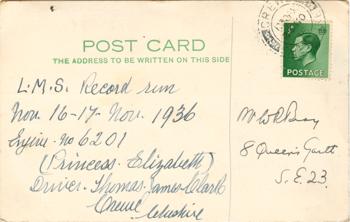 POST CARD
THE ADDRESS TO BE WRITTEN ON THIS SIDE
POSTAGE
L.M.S. Record run
Nov. 16-17- Nov. 1936
Engine. No 6201
(Princess. Elizabeth)
Driver. Thomas. James. Clark
Crewe Cheshire
Mr
8 Queen's Garth
S.E.23.